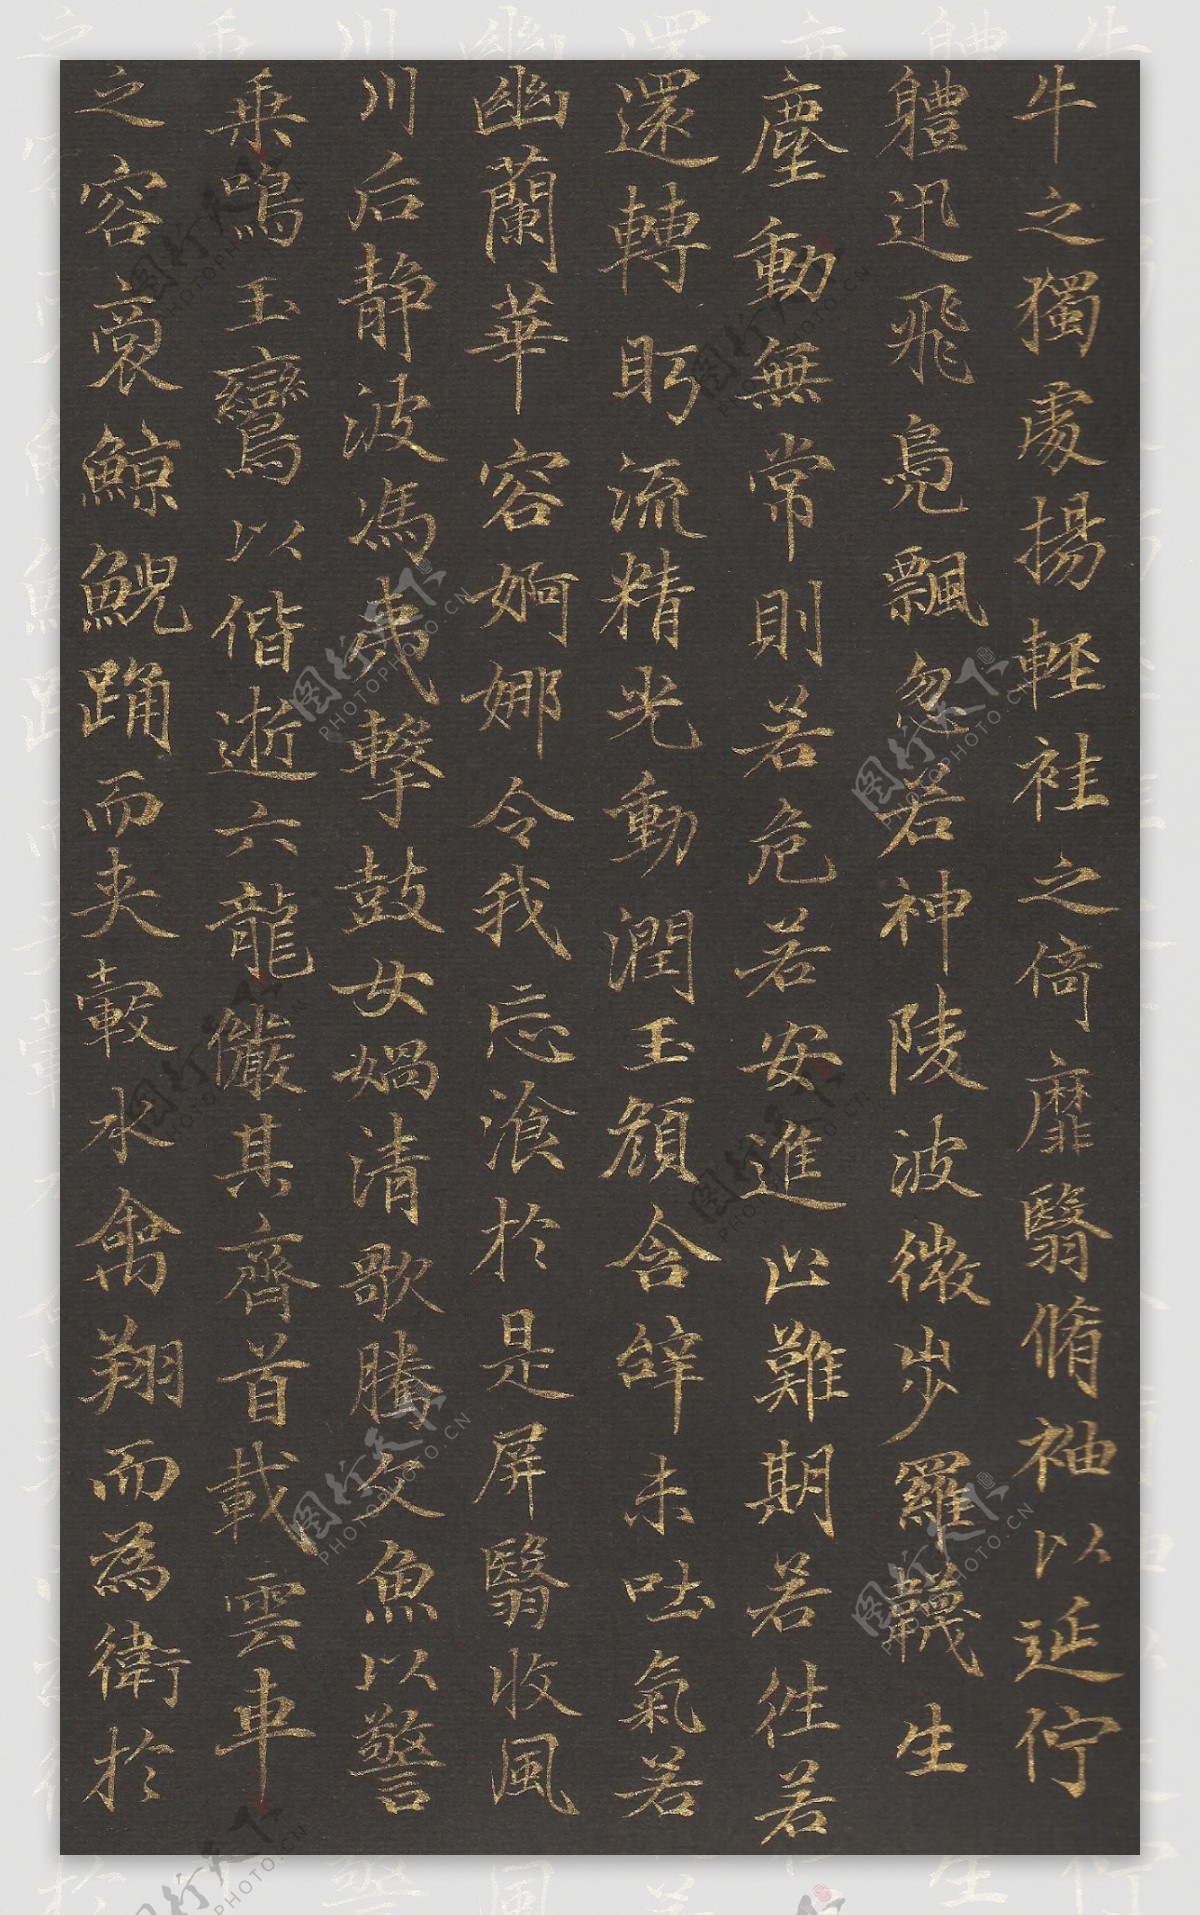 牛之獨處揚輕袿之倚靡翳脩袖以延佇
軆迅飛鳧飄忽若神陵波微步羅韈生
塵動無常則若危若安進止難期若往若
還轉眄流精光動潤玉顏含辭未吐氣若
幽蘭華容婀娜令我忘飡於是屏翳收風
川后靜波馮夷擊鼓女媧清歌騰文魚以警
乘鳴玉鸞以偕逝六龍儼其齊首載雲車
之容裔鯨鯢踊而夾轂水禽翔而為衛於